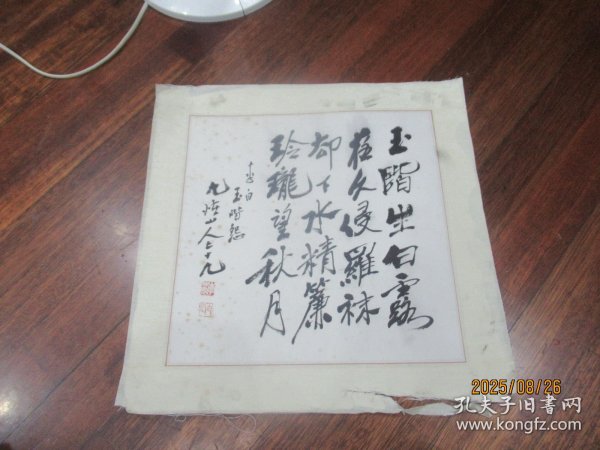 玉階生白露
夜久侵羅袜
却下水精簾
玲瓏望秋月
李白
玉階怨
山人七十九
2025/08/26
孔夫子旧书网
www.kongfz.com